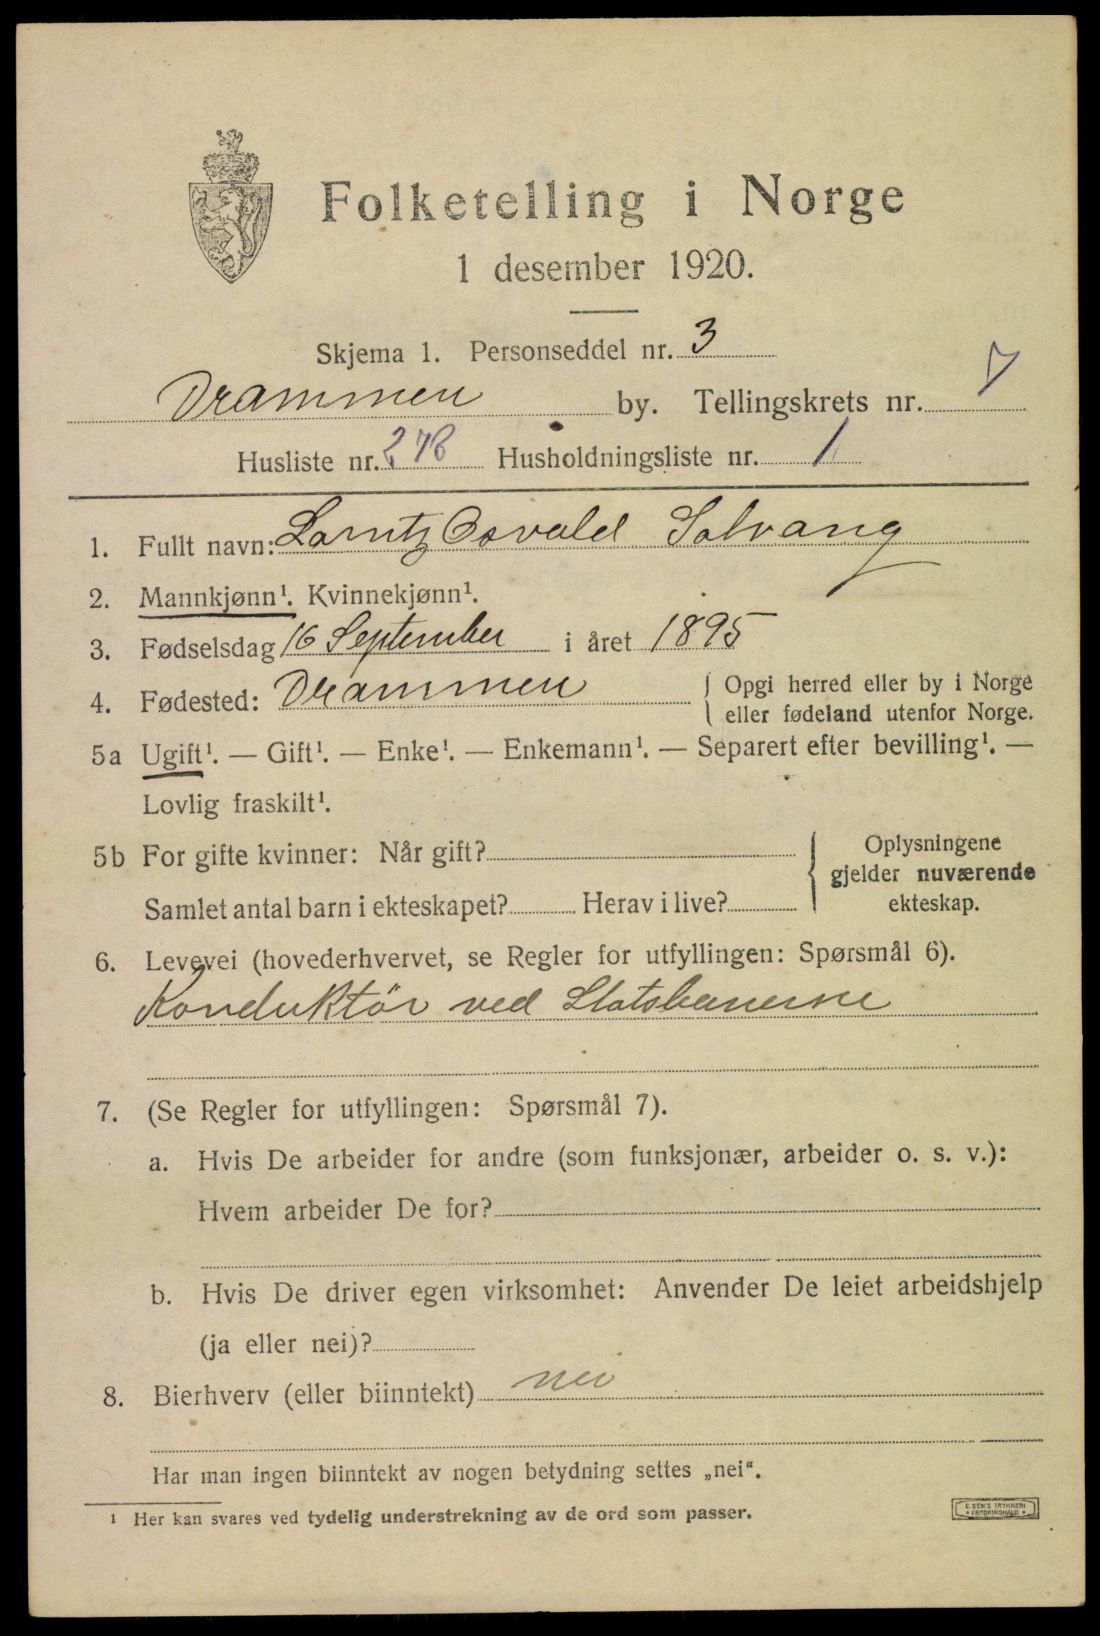 Folketelling i Norge
1 desember 1920.
Skjema 1. Personseddel nr. 3
Drammen by. Tellingskrets nr. 7
Husliste nr. 278 Husholdningsliste nr. 1
1. Fullt navn: Lorntz Osvald Solvang
2. Mannkjønn¹. Kvinnekjønn¹.
3. Fødselsdag 16 September i året 1895
4. Fødested: Drammen { Opgi herred eller by i Norge
eller fødeland utenfor Norge.
5a Ugift¹. — Gift¹. — Enke¹. — Enkemann¹. — Separert efter bevilling¹. —
Lovlig fraskilt¹.
5b For gifte kvinner: Når gift?
Samlet antal barn i ekteskapet? Herav i live?
{ Oplysningene
gjelder nuværende
ekteskap.
6. Levevei (hovederhvervet, se Regler for utfyllingen: Spørsmål 6).
Konduktör ved Statsbanerne
7. (Se Regler for utfyllingen: Spørsmål 7).
a. Hvis De arbeider for andre (som funksjonær, arbeider o. s. v.):
Hvem arbeider De for?
b. Hvis De driver egen virksomhet: Anvender De leiet arbeidshjelp
(ja eller nei)?
8. Bierhverv (eller biinntekt) nei
Har man ingen biinntekt av nogen betydning settes „nei“.
¹ Her kan svares ved tydelig understrekning av de ord som passer.
E. SEM'S TRYKKERI
* FREDRIKSHALD *